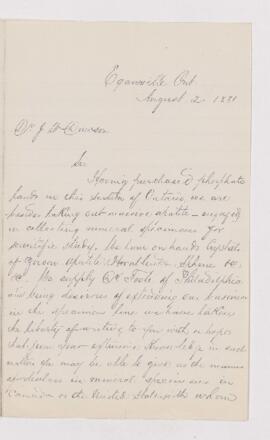 Eganville Ont
August 2 1881
Dr J W Dawson
Sir
Having purchased phosphate
lands in this section of Ontario we are
besides taking out apatite engaged
in collecting mineral specimens for
scientific study. We have on hand crystals
of Zircon Apatite Hornblende Sphene &c
&c. We supply Dr Foote of Philadelphia
and being desirous of extending our business
in the specimen line we have taken
the liberty of writing to you with a hope
that from your extensive knowledge in such
matters you may be able to give us the names
of dealers in mineral specimens in
Canada or the United States with whom